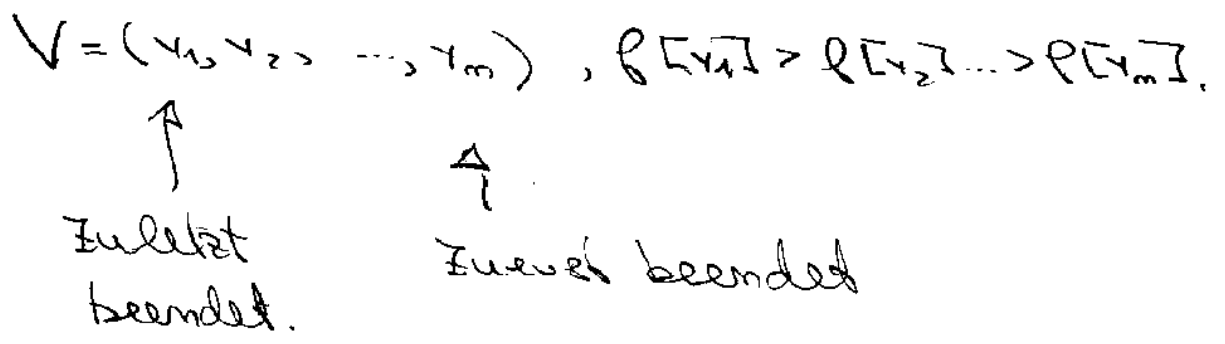 V = (v₁, v₂, ..., vₙ), f[v₁] > f[v₂] ... > f[vₙ].
Zuletzt
beendet.
Zuerst beendet